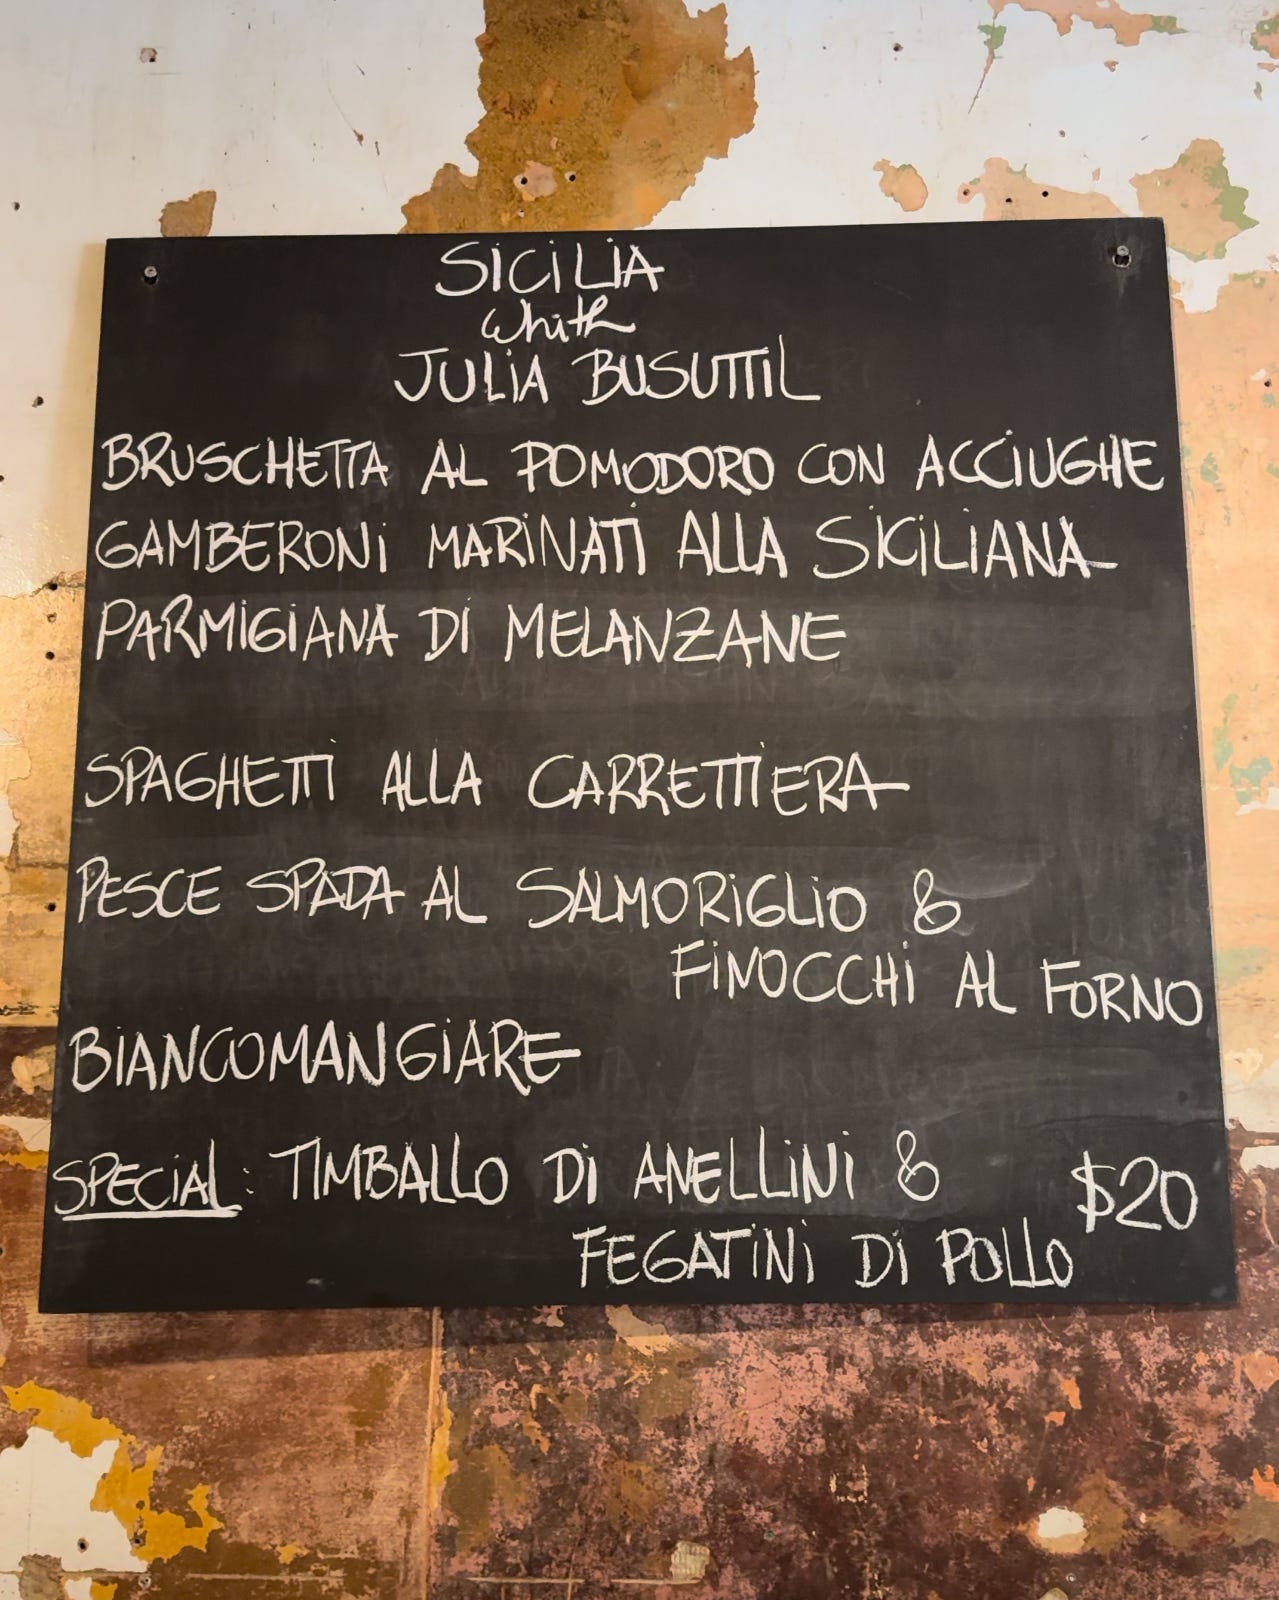 SICILIA
Whith
JULIA BUSUTTIL
BRUSCHETTA AL POMODORO CON ACCIUGHE
GAMBERONI MARINATI ALLA SICILIANA
PARMIGIANA DI MELANZANE
SPAGHETTI ALLA CARRETTIERA
PESCE SPADA AL SALMORIGLIO &
FINOCCHI AL FORNO
BIANCOMANGIARE
SPECIAL: TIMBALLO DI ANELLINI &
FEGATINI DI POLLO $20